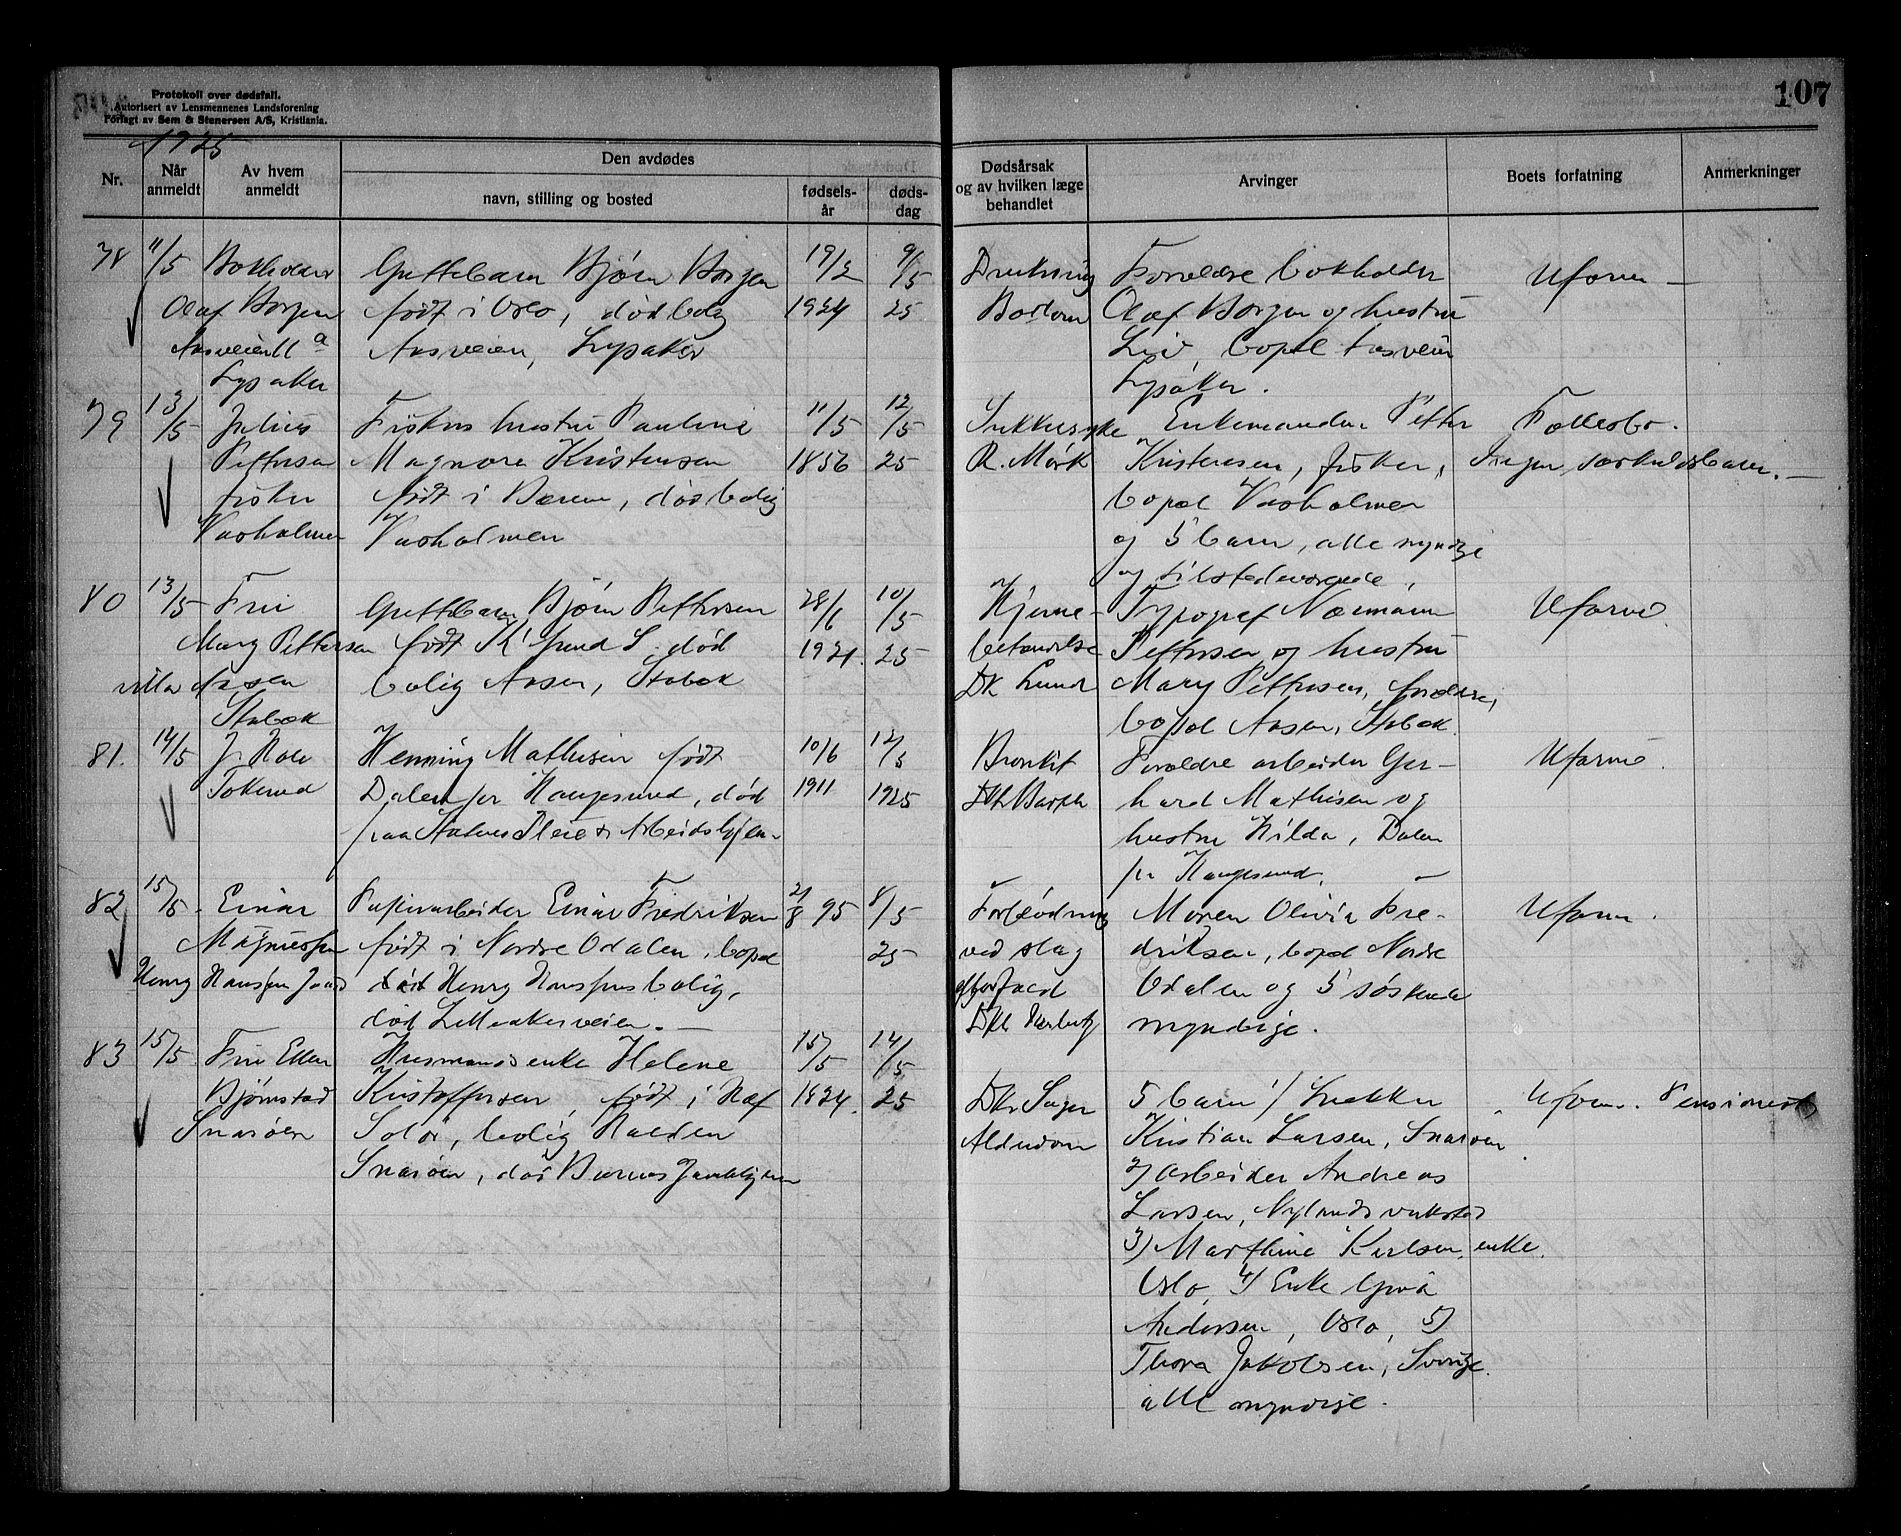 Protokoll over dødsfall.
Autorisert av Lensmennenes Landsforening
Forlagt av Sem & Stenersen A/S, Kristiania.
107
1925
Nr.
Når anmeldt
Av hvem anmeldt
Den avdødes
navn, stilling og bosted
fødsels-år
døds-dag
Dødsårsak og av hvilken læge behandlet
Arvinger
Boets forfatning
Anmerkninger
78 11/5 Bokholder Guttebarn Bjørn Borgen 19/2 9/5
Olaf Borgen født i Oslo, død bolig 1924 25
Aasveien 11 a Aasveien, Lysaker
Lysaker
Drukning Forældre bokholder Uformu —
Olaf Borgen og hustru
Liv, bopel Aasveien
Lysaker.
79 13/5 Julius Fiskers hustru Pauline 11/5 12/5
Pettersen Magnora Kristensen 1856 25
fisker født i Bærum, død bolig
Vasholmen Vasholmen
Sukkersyke Enkemanden Petter Fællesbo.
R. Mørk Kristensen, fisker, Ingen særkuldsbarn. —
bopel Vasholmen
og 5 barn, alle myndige
og tilstedeværende.
80 13/5 Fru Guttebarn Bjørn Pettersen 28/6 10/5
Mary Pettersen født Kr.sund S. død 1921. 25
villa Aasen bolig Aasen, Stabæk
Stabæk
Hjerne- Typograf Normann Uformu.
betændelse Pettersen og hustru
Dr. Lund Mary Pettersen, forældre,
bopel Aasen, Stabæk.
81. 14/5 J. Roll Henning Mathisen født 10/6 12/5
Tokerud Dalen pr Haugesund, død 1911 1925
paa Statens Pleie & Arbeidshjem.
Bronkit Forældre arbeider Ger- Uformu.
hard Mathisen og
hustru Hilda, Dalen
pr Haugesund. —
82 15/5. Einar Papirarbeider Einar Fredriksen 21/8 95 8/5
Magnussen født i Nordre Odalen, bopel 25
Henry Hansens Henry Hansens bolig,
død Lilleakerveien. —
Forblødning Moren Olivia Fre- Uformu.
ved slag driksen, bopel Nordre
Odalen og 5 søskende
myndige.
83 15/5 Fru Ellen Husmandsenke Helene 15/5 14/5
Bjørnstad Kristoffersen, født i 1824. 25
Snarøen Solør, bolig Halden
Snarøen, død Bærums Gamlehjem
5 barn 1/ Snekker Uformu. Pensionert
Alderdom Kristian Larsen, Snarøen
2/ Arbeider Andreas
Larsen, Nylands verksted
3/ Marthine Karlsen, enke.
Oslo, 4/ Enke
Andersen, Oslo, 5/
Thora Jakobsen, Sverige.
alle myndige.